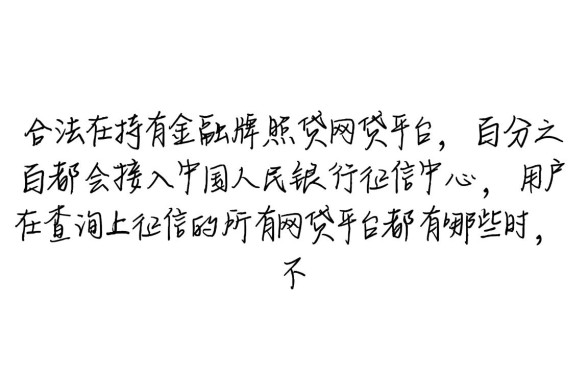 合法在持有金融牌照贷网贷平台，百分之
百都会接入中国人民银行征信中心，用户
在查询上征信的所有网贷平台都有哪些时，
不